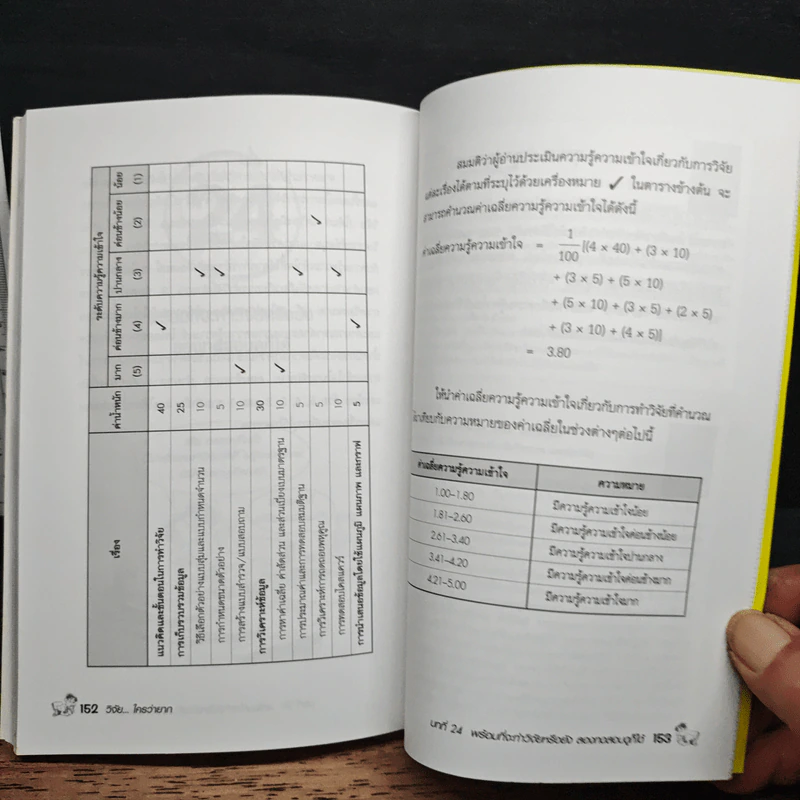 เรื่อง ค่าน้ำหนัก ระดับความรู้ความเข้าใจ
มาก ค่อนข้างมาก ปานกลาง ค่อนข้างน้อย น้อย
(5) (4) (3) (2) (1)
แนวคิดและขั้นตอนในการทำวิจัย 40 ✓
การเก็บรวบรวมข้อมูล 25
วิธีเลือกตัวอย่างแบบสุ่มและแบบกำหนดจำนวน 10 ✓
การกำหนดขนาดตัวอย่าง 5 ✓
การสร้างแบบสำรวจ/แบบสอบถาม 10 ✓
การวิเคราะห์ข้อมูล 30
การหาค่าเฉลี่ย ค่าสัดส่วน และส่วนเบี่ยงเบนมาตรฐาน 10 ✓
การประมาณค่าและการทดสอบสมมติฐาน 5 ✓
การวิเคราะห์การถดถอยพหุคูณ 5 ✓
การทดสอบไคสแควร์ 10 ✓
การนำเสนอข้อมูลโดยใช้แผนภูมิ แผนภาพ และกราฟ 5 ✓
152 วิจัย... ใครว่ายาก
สมมติว่าผู้อ่านประเมินความรู้ความเข้าใจเกี่ยวกับการวิจัย
แต่ละเรื่องได้ตามที่ระบุไว้ด้วยเครื่องหมาย ✓ ในตารางข้างต้น จะ
สามารถคำนวณค่าเฉลี่ยความรู้ความเข้าใจได้ดังนี้
ค่าเฉลี่ยความรู้ความเข้าใจ = 1/100 [(4 × 40) + (3 × 10)
+ (3 × 5) + (5 × 10)
+ (5 × 10) + (3 × 5) + (2 × 5)
+ (3 × 10) + (4 × 5)]
= 3.80
ให้นำค่าเฉลี่ยความรู้ความเข้าใจเกี่ยวกับการทำวิจัยที่คำนวณ
มาเทียบกับความหมายของค่าเฉลี่ยในช่วงต่างๆต่อไปนี้
ค่าเฉลี่ยความรู้ความเข้าใจ ความหมาย
1.00–1.80 มีความรู้ความเข้าใจน้อย
1.81–2.60 มีความรู้ความเข้าใจค่อนข้างน้อย
2.61–3.40 มีความรู้ความเข้าใจปานกลาง
3.41–4.20 มีความรู้ความเข้าใจค่อนข้างมาก
4.21–5.00 มีความรู้ความเข้าใจมาก
บทที่ 24 พร้อมที่จะทำวิจัยหรือยัง ลองทดสอบดูก็ได้ 153